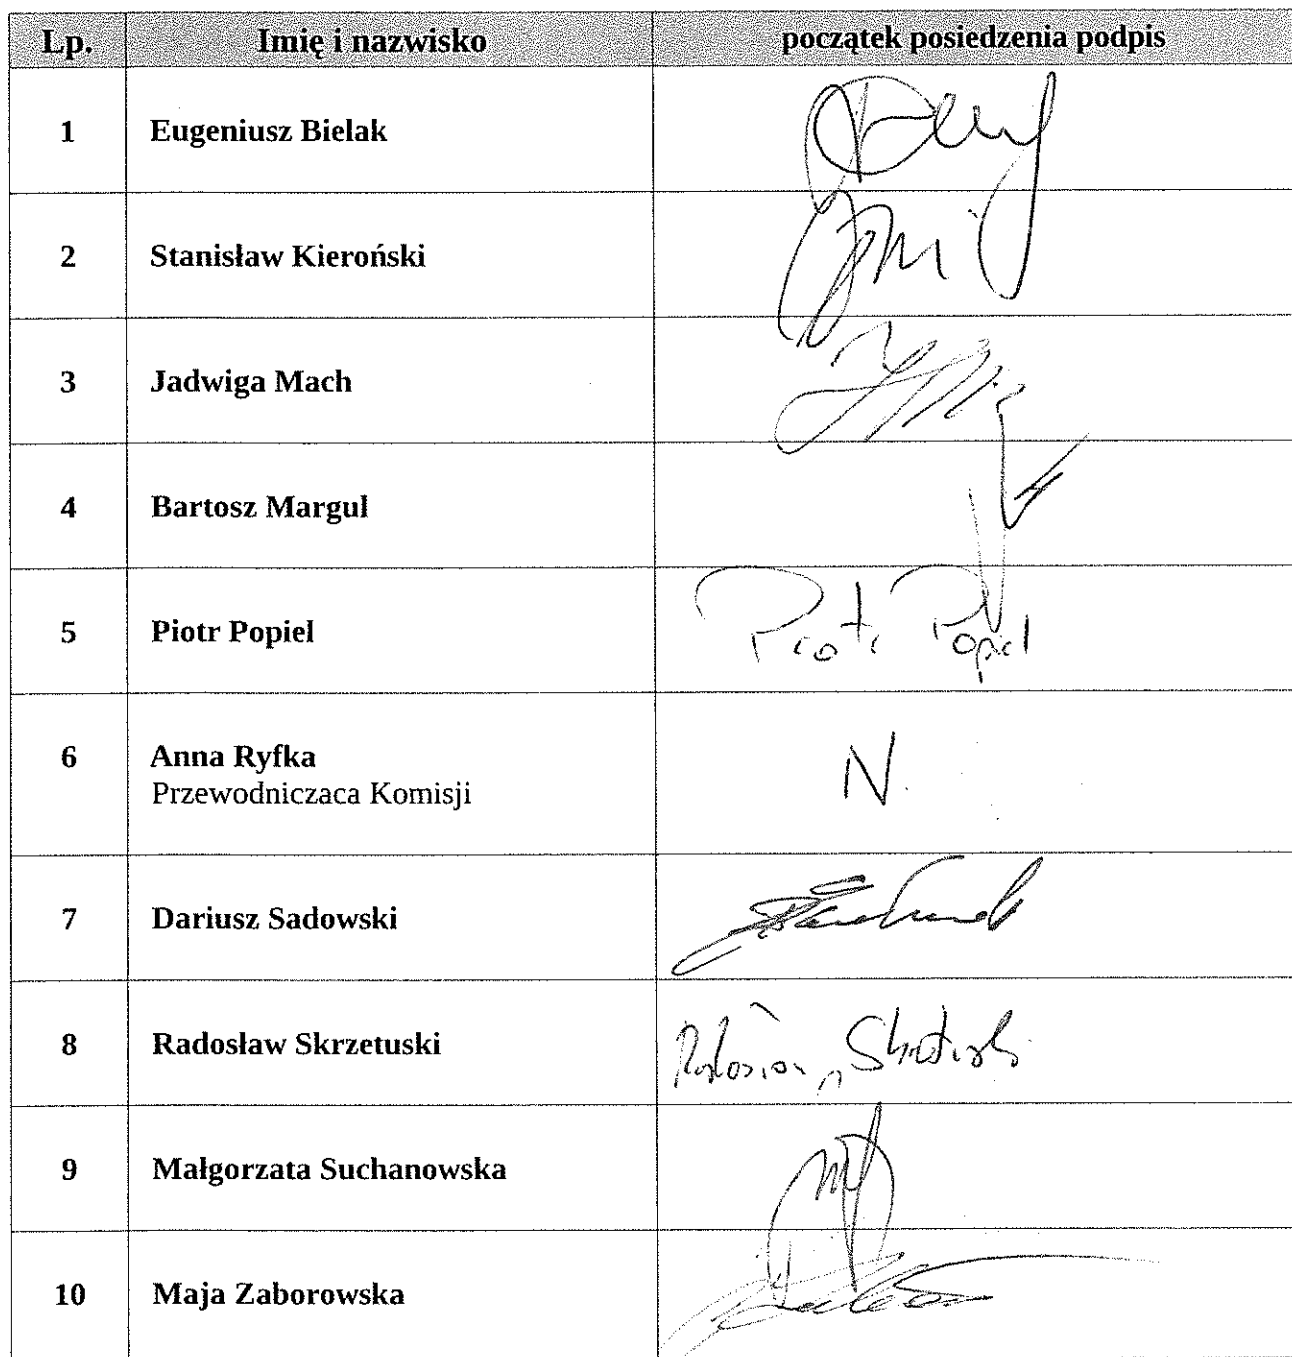 Lp. Imię i nazwisko początek posiedzenia podpis
1 Eugeniusz Bielak
2 Stanisław Kieroński
3 Jadwiga Mach
4 Bartosz Margul
5 Piotr Popiel Piotr Popiel
6 Anna Ryfka N.
Przewodnicząca Komisji
7 Dariusz Sadowski
8 Radosław Skrzetuski
9 Małgorzata Suchanowska
10 Maja Zaborowska